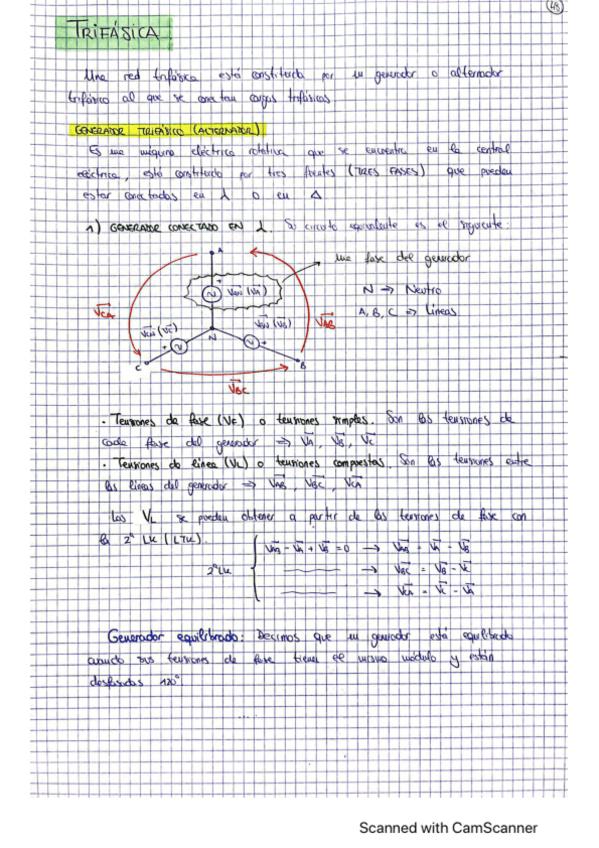 48
TRIFÁSICA.
Una red trifásica está constituida por un generador o alternador
trifásico al que se conectan cargas trifásicas.
GENERADOR TRIFÁSICO (ALTERNADOR)
Es una máquina eléctrica rotativa que se encuentra en la central
eléctrica, está constituido por tres fuentes (TRES FASES) que pueden
estar conectados en λ o en Δ
1) GENERADOR CONECTADO EN λ. Su circuito equivalente es el siguiente:
A
una fase del generador
N → Neutro
A, B, C ⇒ Líneas
VCA
VAN (VA)
VCN (VC)
VBN (VB)
VAB
N
C
B
VBC
· Tensiones de fase (VF) o tensiones simples. Son las tensiones de
cada fase del generador ⇒ VA, VB, VC
· Tensiones de línea (VL) o tensiones compuestas. Son las tensiones entre
las líneas del generador ⇒ VAB, VBC, VCA
Las VL se pueden obtener a partir de las tensiones de fase con
la 2ª LK (LTK).
VAB - VA + VB = 0 → VAB = VA - VB
2ª LK → VBC = VB - VC
→ VCA = VC - VA
Generador equilibrado: Decimos que un generador está equilibrado
cuando sus tensiones de fase tienen el mismo módulo y están
desfasadas 120°
...
Scanned with CamScanner